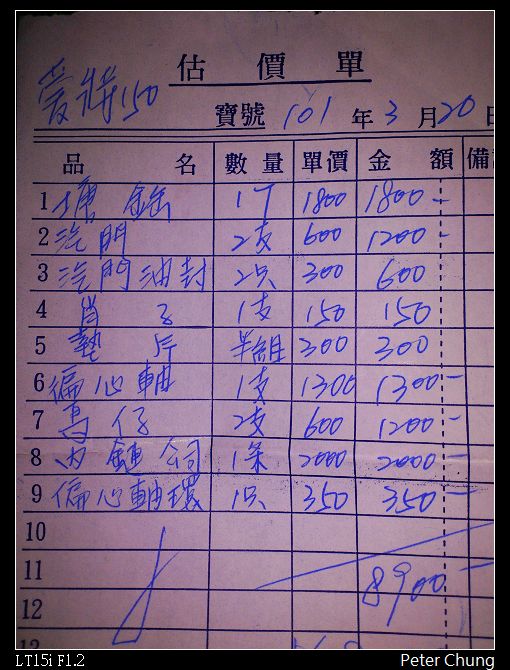 估價單
愛將150
寶號 101年3月20日
品名 數量 單價 金額 備
1 塘缸 1丁 1800 1800-
2 汽門 2支 600 1200-
3 汽門油封 2只 300 600
4 肖子 1支 150 150
5 墊片 半組 300 300
6 偏心軸 1支 1300 1300-
7 馬仔 2支 600 1200-
8 內鏈公司 1条 2000 2000-
9 偏心軸環 1只 350 350-
10
11 8900-
12
LT15i F1.2
Peter Chung